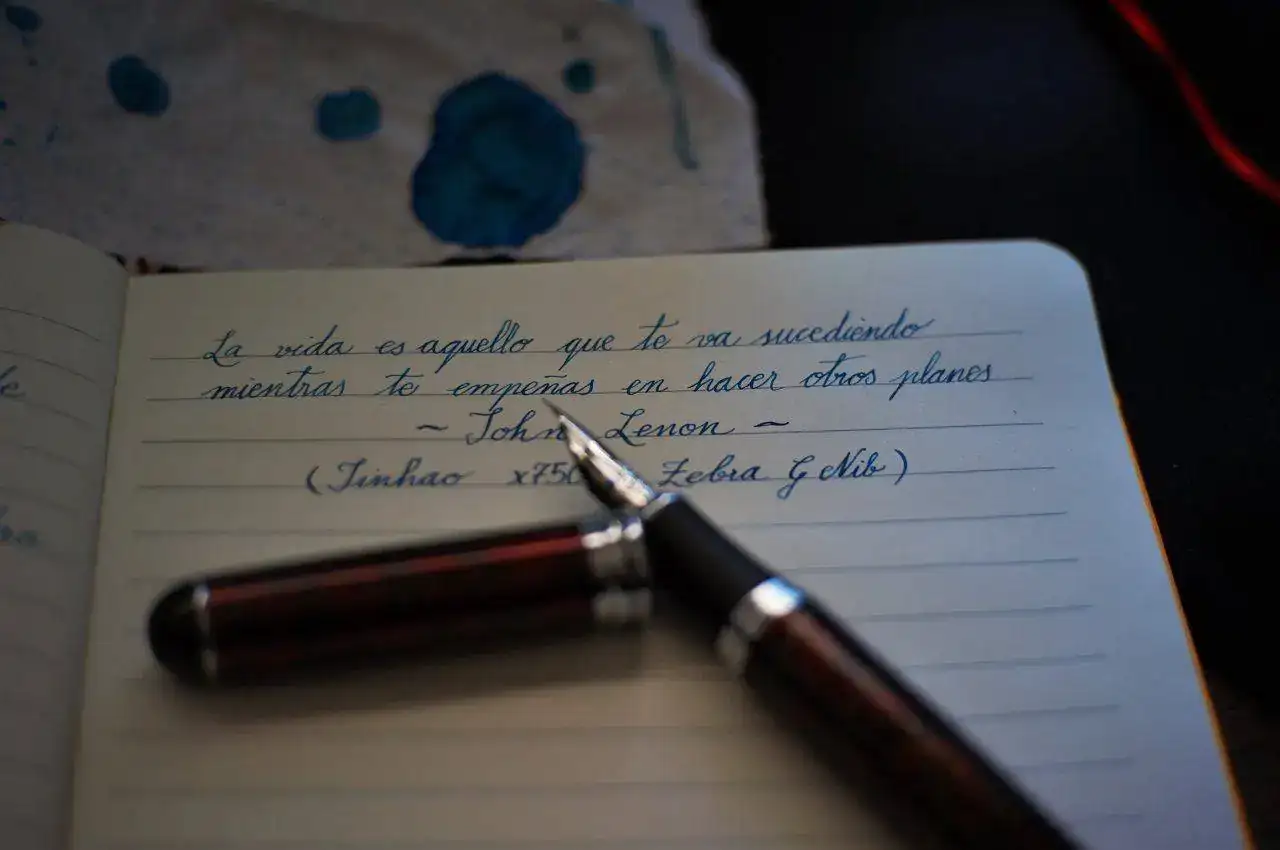 La vida es aquello que te va sucediendo
mientras te empeñas en hacer otros planes
~ John Lenon ~
(Jinhao x750 Zebra G Nib)